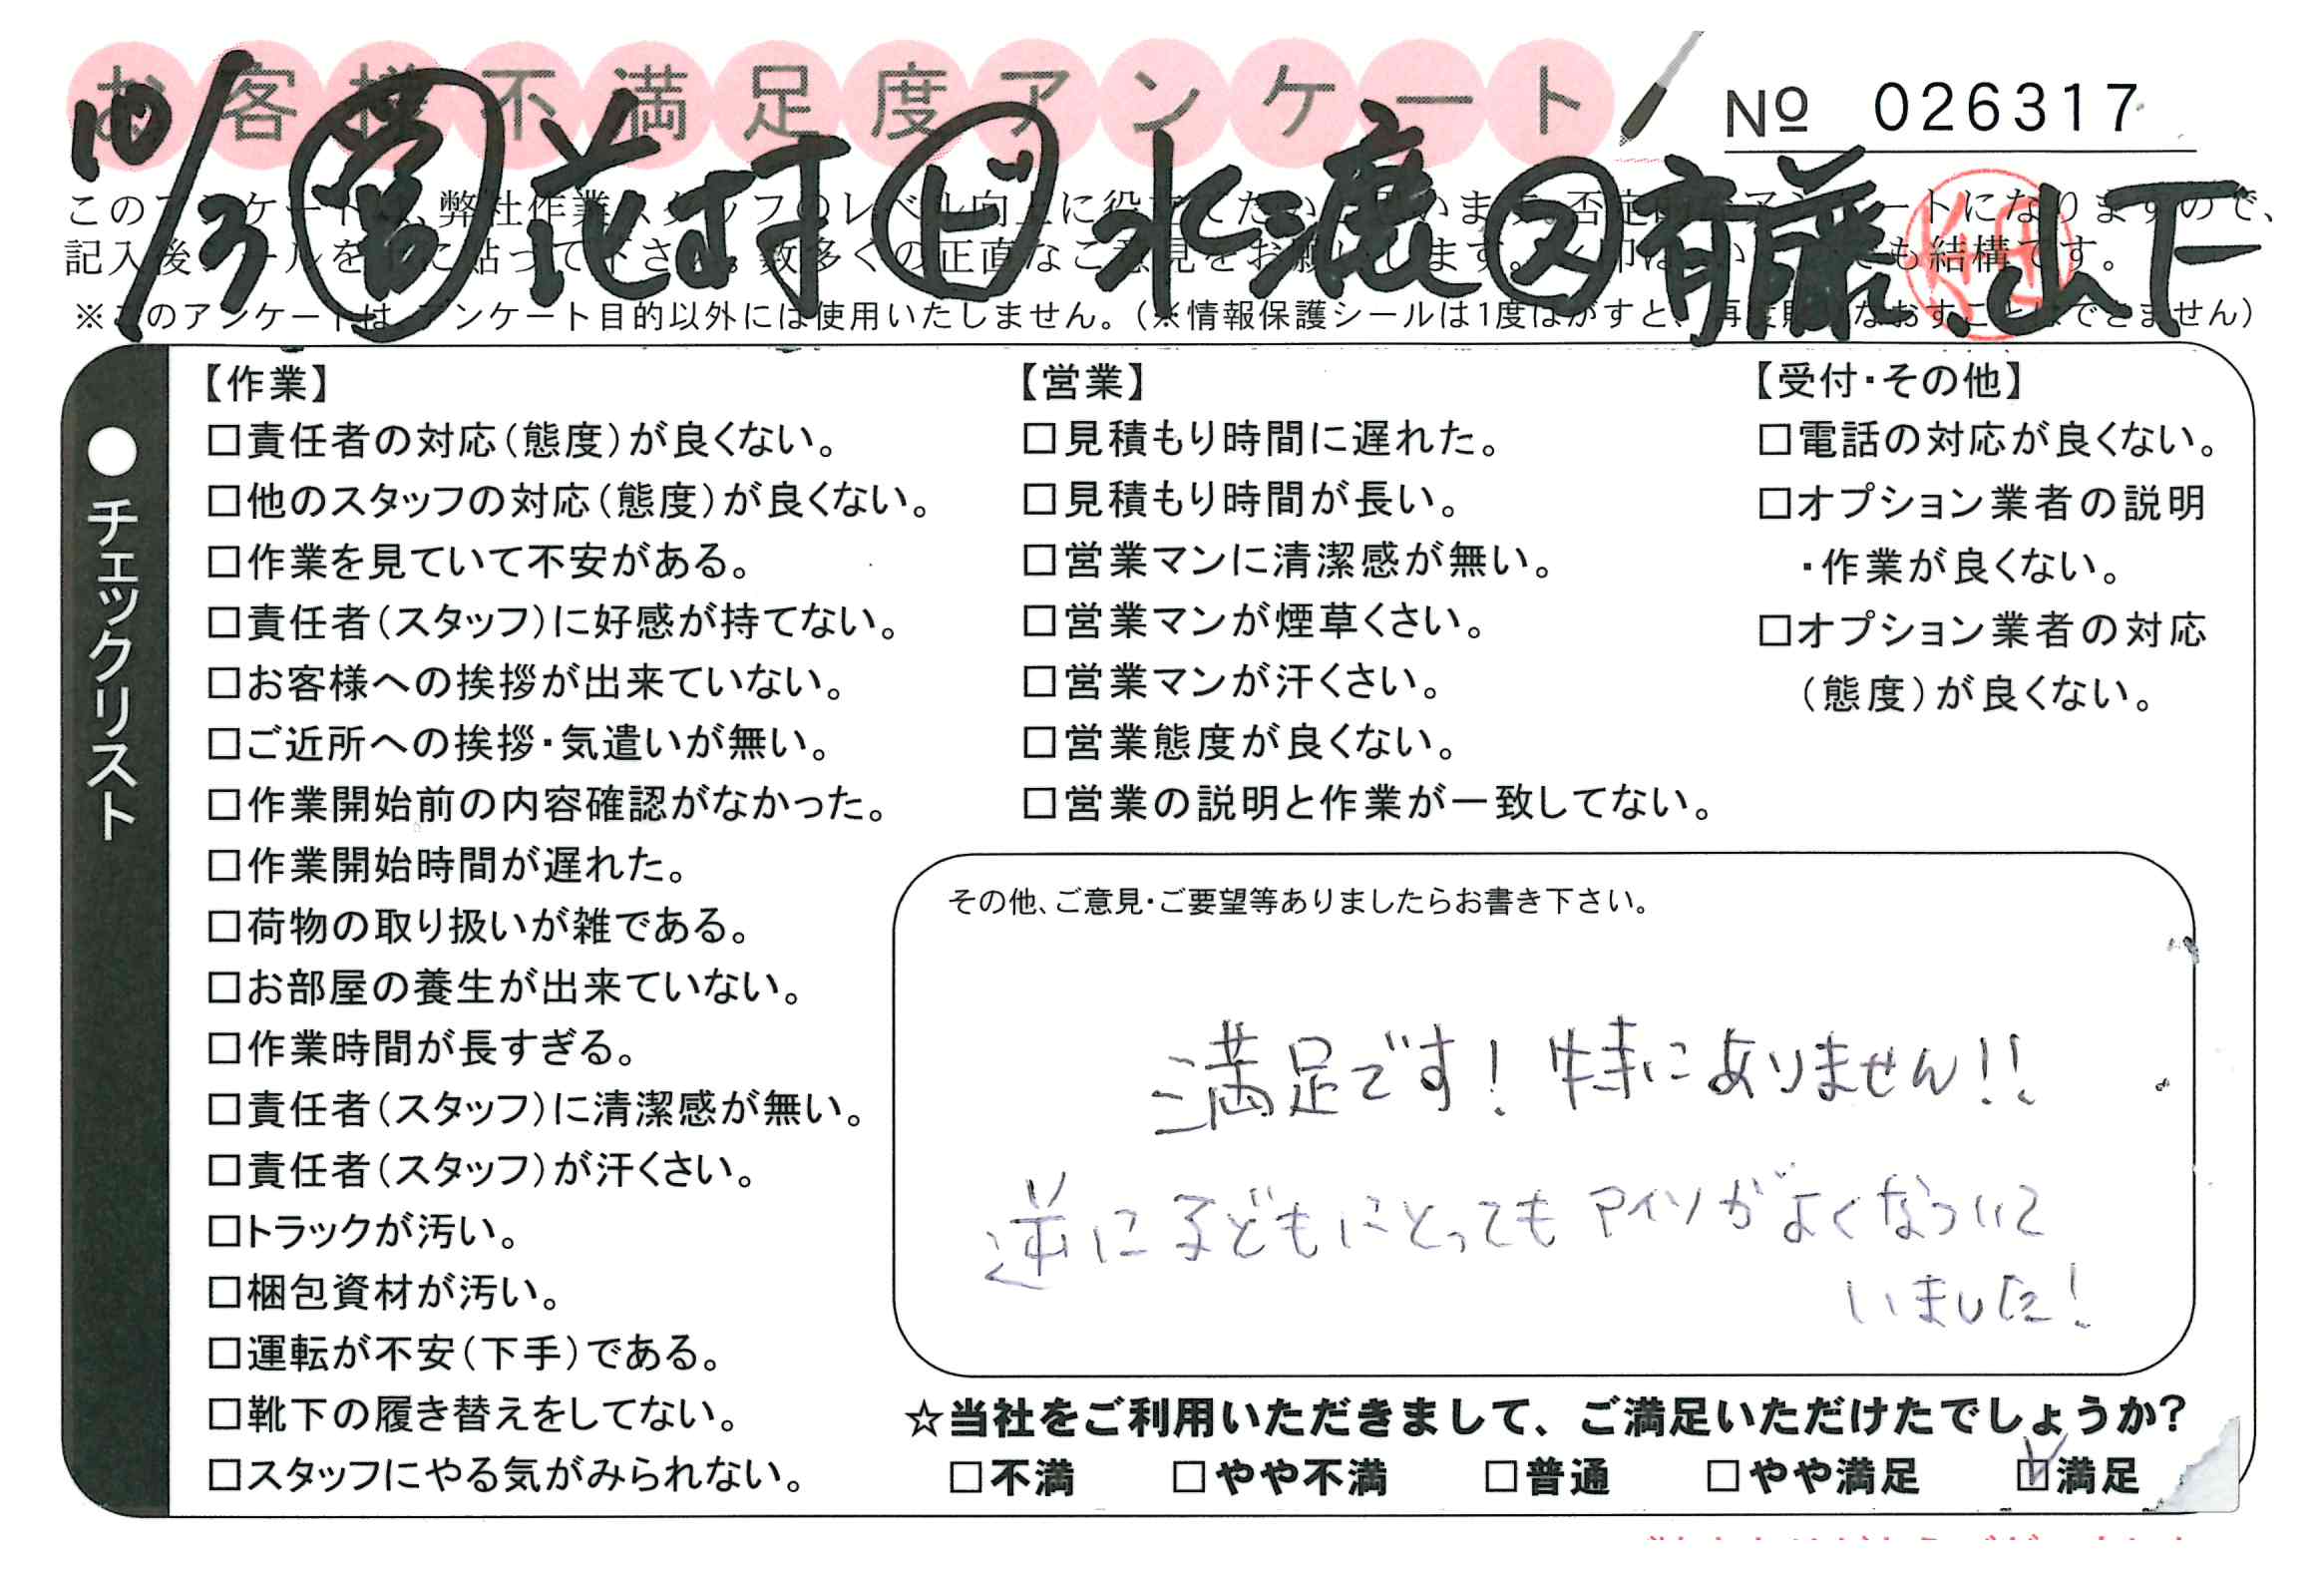 お客様不満足度アンケート
№ 026317
10/3 営 花村 ド 水漉 ス 斉藤、山下
このアンケートは、弊社作業スタッフのレベル向上に役立てたいと思います。否定的なアンケートになりますので、
記入後シールを上に貼って下さい。数多くの正直なご意見をお願いします。
※このアンケートは、アンケート目的以外には使用いたしません。（※情報保護シールは1度はがすと、再度貼りなおすことはできません）
●チェックリスト
【作業】
□責任者の対応（態度）が良くない。
□他のスタッフの対応（態度）が良くない。
□作業を見ていて不安がある。
□責任者（スタッフ）に好感が持てない。
□お客様への挨拶が出来ていない。
□ご近所への挨拶・気遣いが無い。
□作業開始前の内容確認がなかった。
□作業開始時間が遅れた。
□荷物の取り扱いが雑である。
□お部屋の養生が出来ていない。
□作業時間が長すぎる。
□責任者（スタッフ）に清潔感が無い。
□責任者（スタッフ）が汗くさい。
□トラックが汚い。
□梱包資材が汚い。
□運転が不安（下手）である。
□靴下の履き替えをしてない。
□スタッフにやる気がみられない。
【営業】
□見積もり時間に遅れた。
□見積もり時間が長い。
□営業マンに清潔感が無い。
□営業マンが煙草くさい。
□営業マンが汗くさい。
□営業態度が良くない。
□営業の説明と作業が一致してない。
【受付・その他】
□電話の対応が良くない。
□オプション業者の説明
・作業が良くない。
□オプション業者の対応
（態度）が良くない。
その他、ご意見・ご要望等ありましたらお書き下さい。
満足です！特にありません!!
逆に子どもにとってもアイソがよくなついて
いました！
☆当社をご利用いただきまして、ご満足いただけたでしょうか？
□不満 □やや不満 □普通 □やや満足 ☑満足